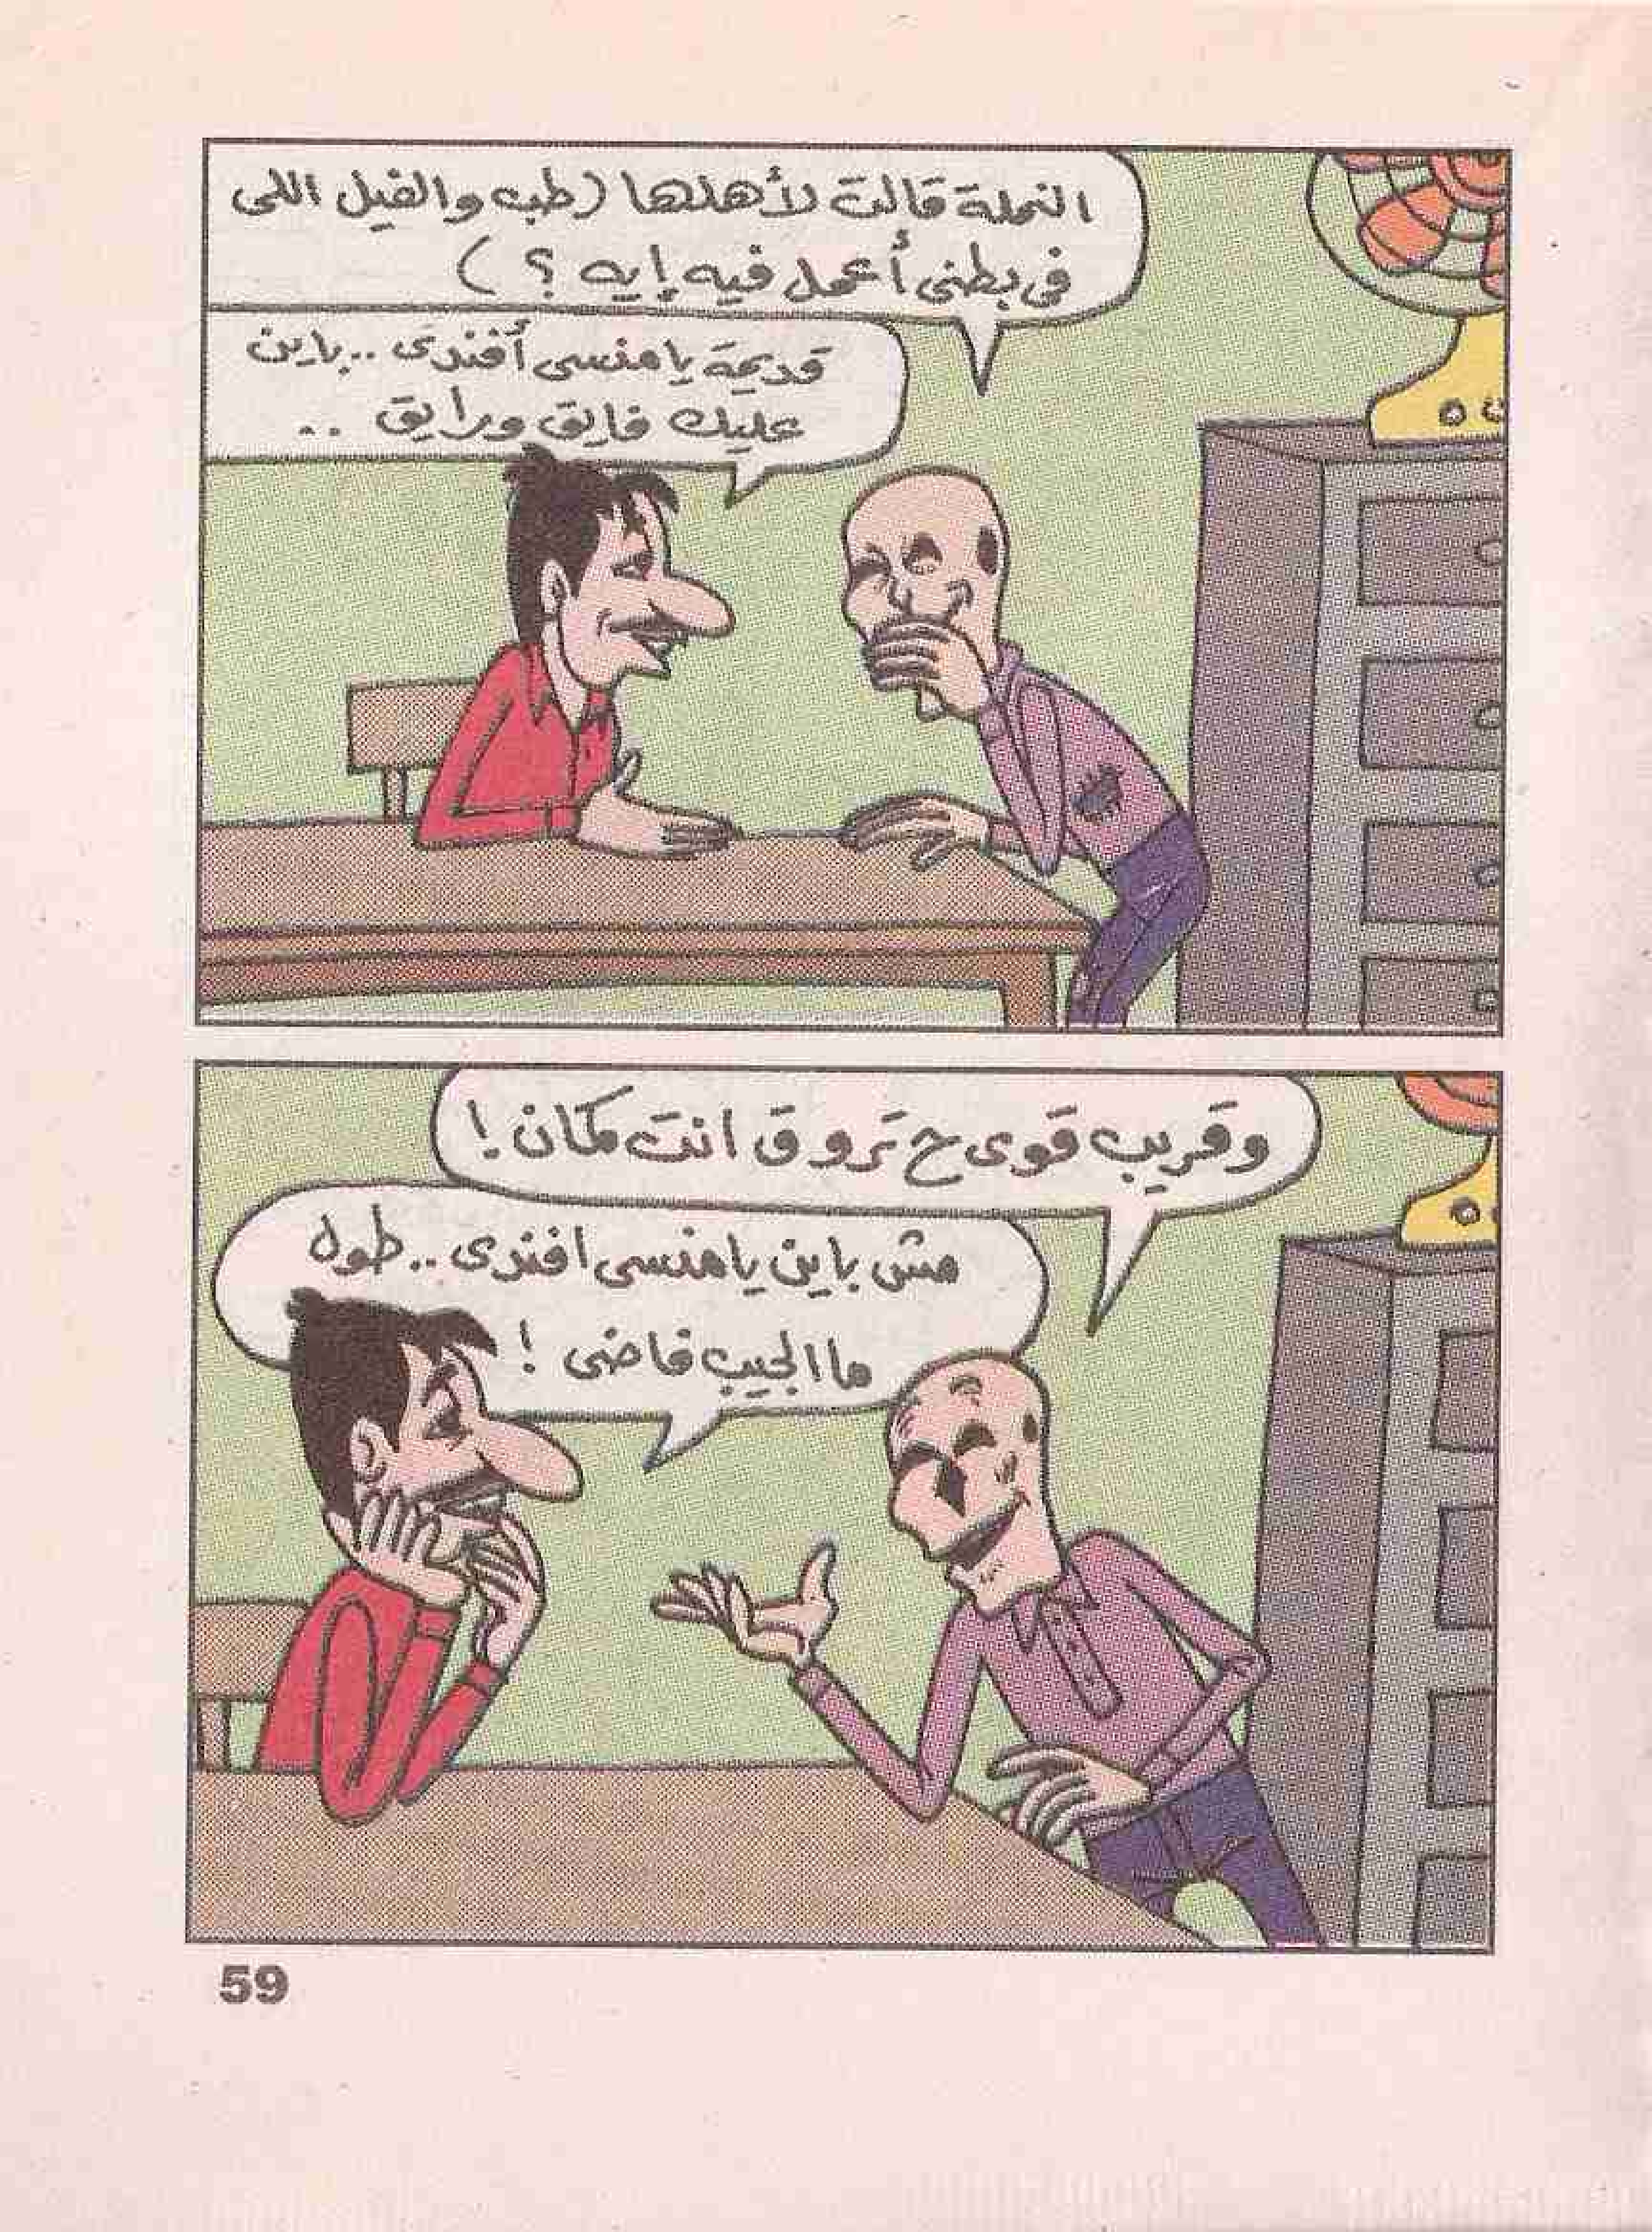 النملة قالت لأهلها (طب والفيل اللى
فى بطنى أعمل فيه إيه ؟ )
قديمة يا منسى أفندى .. باين
عليك فايق ورايق ..
وقريب قوى ح تروق انت كمان !
مش باين يا منسى افندى .. طول
ما الجيب فاضى !
59